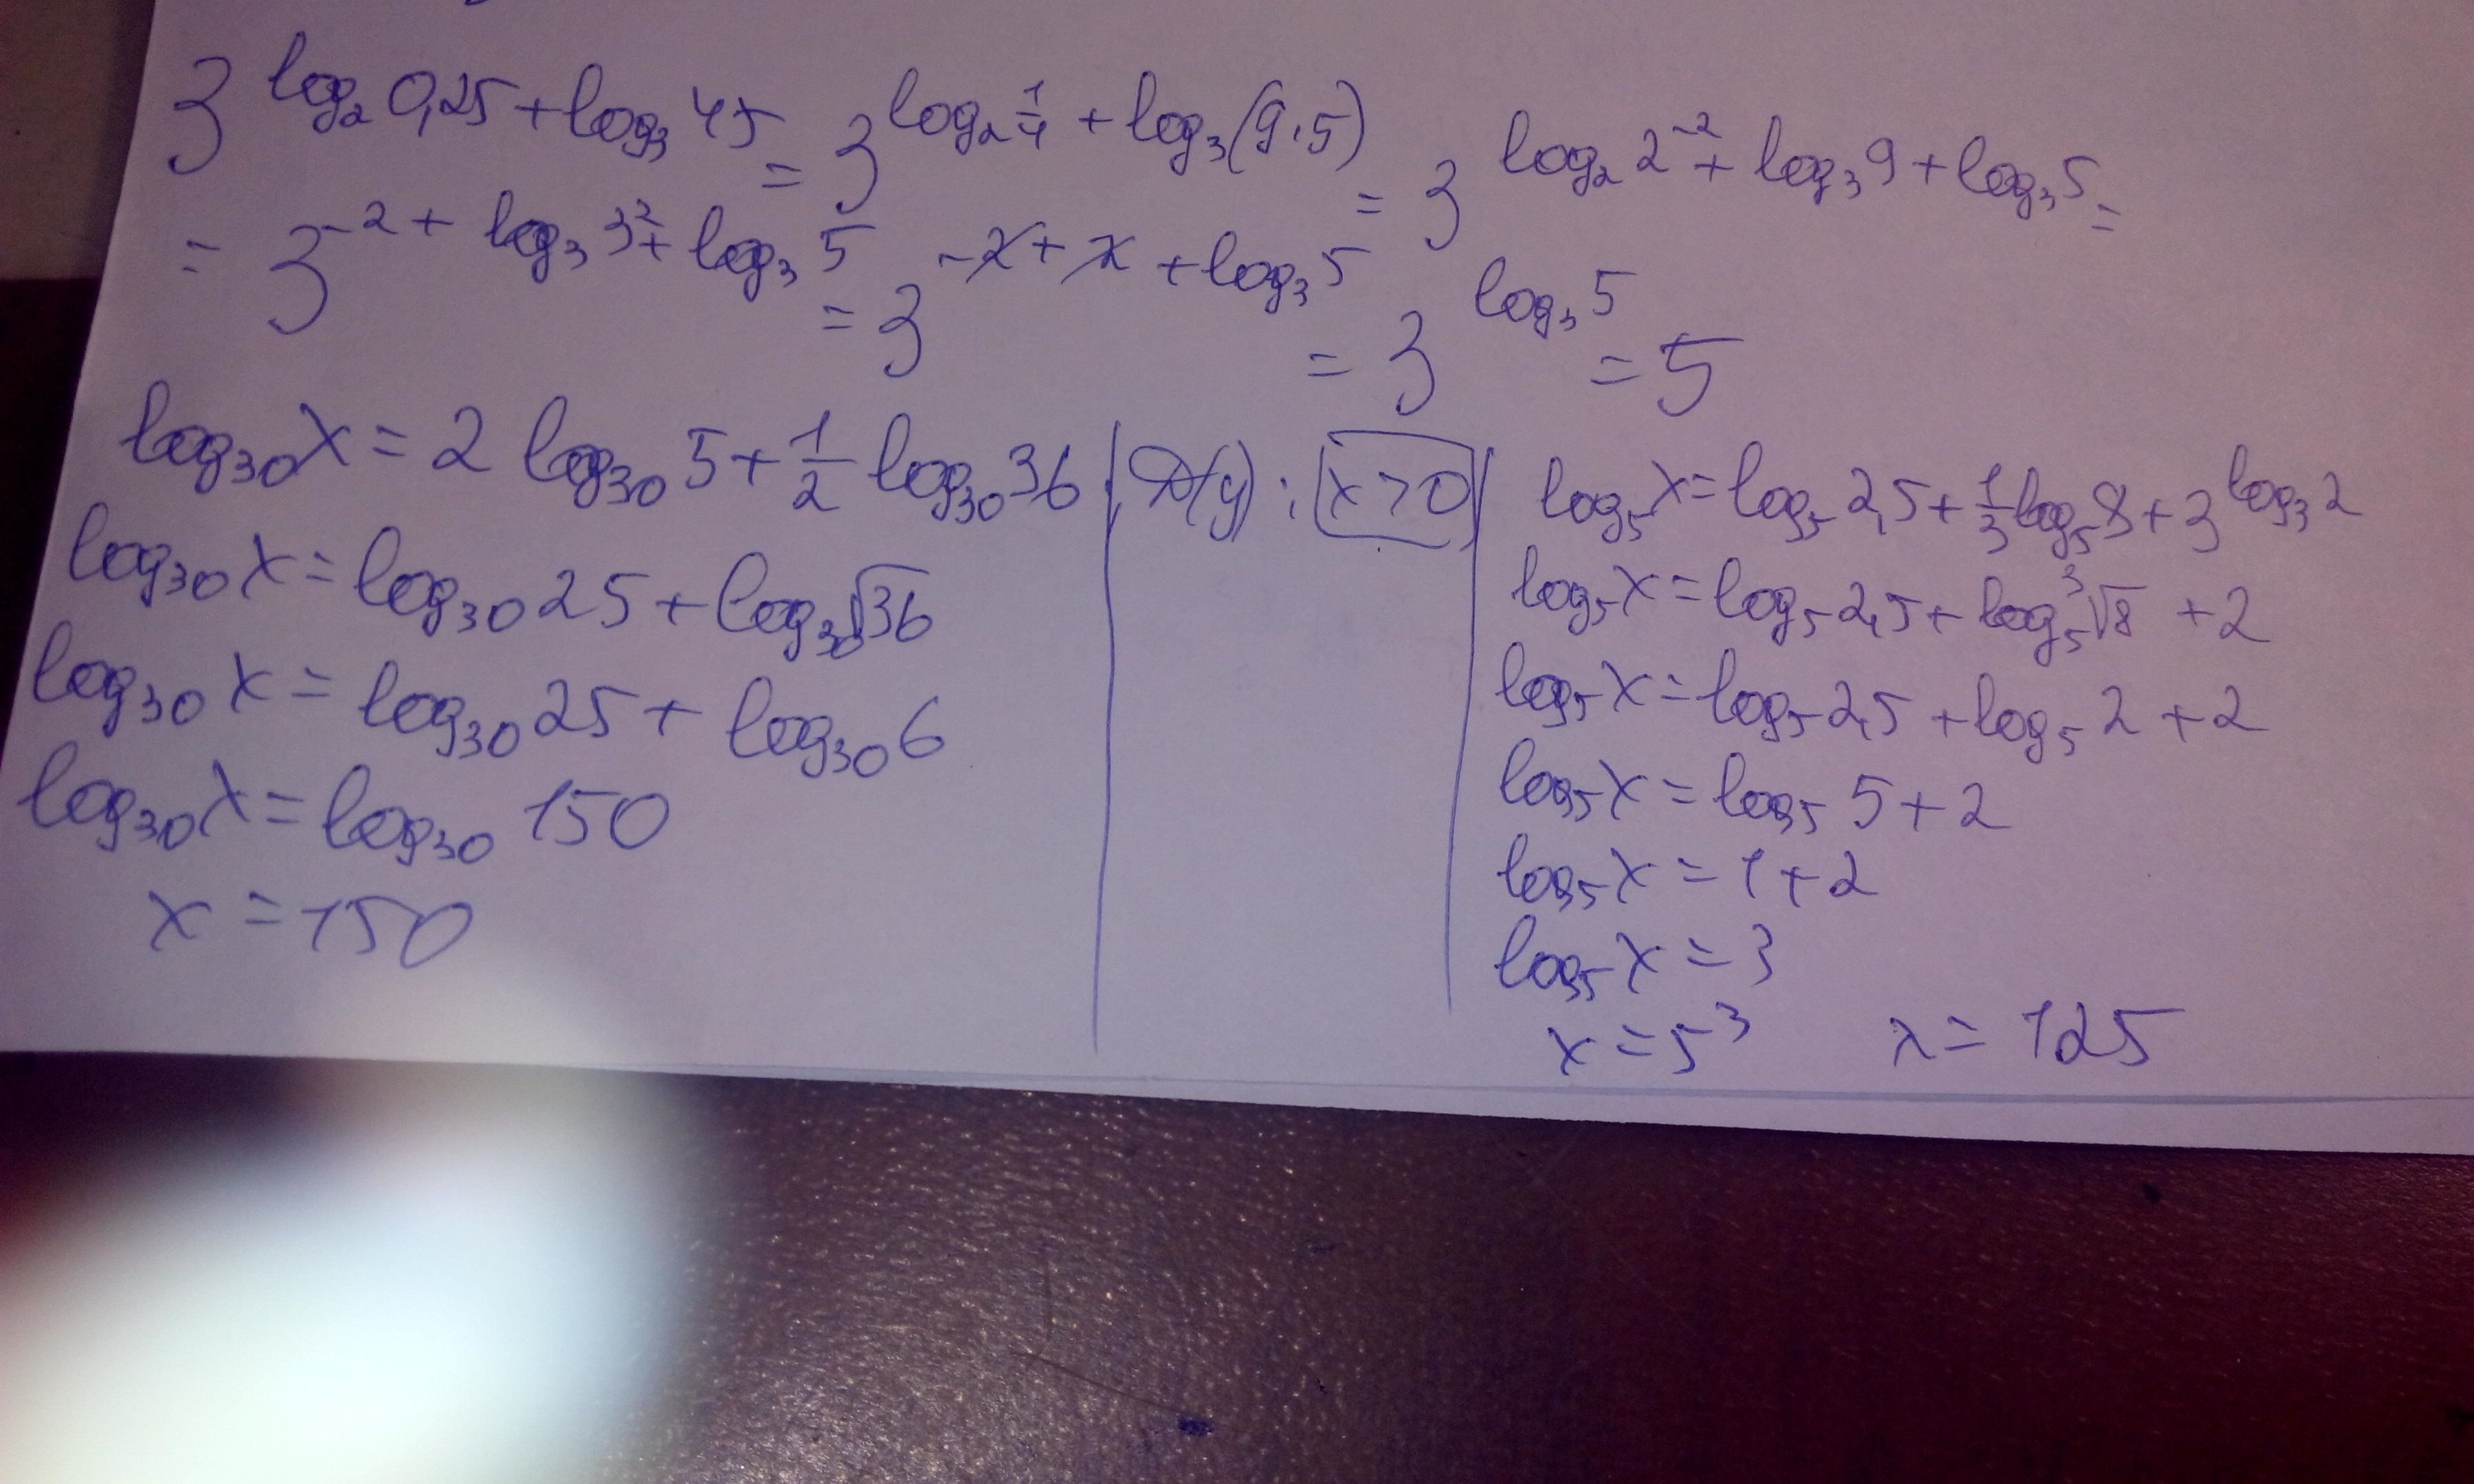 3^(log₂ 0,25 + log₃ 45) = 3^(log₂ 1/4 + log₃(9·5)) = 3^(log₂ 2⁻² + log₃ 9 + log₃ 5) =
= 3^(-2 + log₃ 3² + log₃ 5) = 3^(-2 + 2 + log₃ 5) = 3^(log₃ 5) = 5
log₃₀ x = 2 log₃₀ 5 + 1/2 log₃₀ 36
log₃₀ x = log₃₀ 25 + log₃₀ √36
log₃₀ x = log₃₀ 25 + log₃₀ 6
log₃₀ x = log₃₀ 150
x = 150
D(y): x > 0
log₅ x = log₅ 2,5 + 1/3 log₅ 8 + 3^(log₃ 2)
log₅ x = log₅ 2,5 + log₅ ³√8 + 2
log₅ x = log₅ 2,5 + log₅ 2 + 2
log₅ x = log₅ 5 + 2
log₅ x = 1 + 2
log₅ x = 3
x = 5³ x = 125